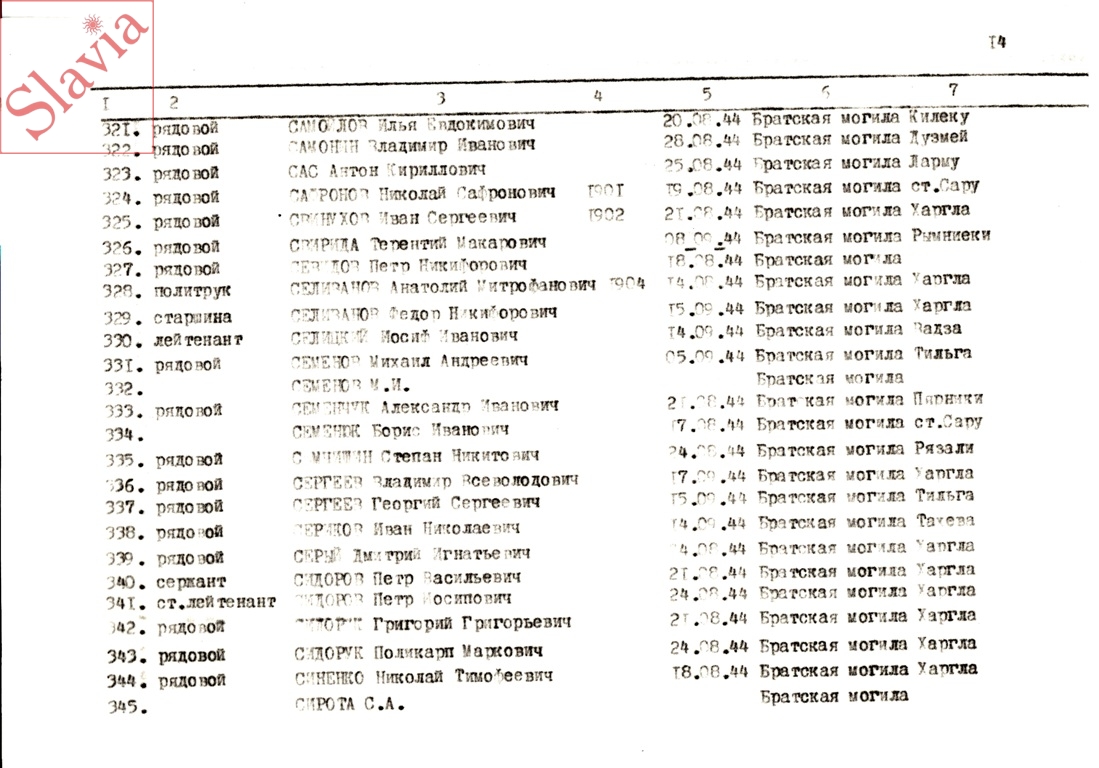 Slavia
I4
I 2 3 4 5 6 7
321. рядовой САМОЙЛОВ Илья Евдокимович 20.08.44 Братская могила Килеку
322. рядовой САМОНИН Владимир Иванович 28.08.44 Братская могила Дузмей
323. рядовой САС Антон Кириллович 25.08.44 Братская могила Ларму
324. рядовой САФРОНОВ Николай Сафронович I90I I9.08.44 Братская могила ст.Сару
325. рядовой СВИНУХОВ Иван Сергеевич I902 2I.08.44 Братская могила Харгла
326. рядовой СВИРИДА Терентий Макарович 08.09.44 Братская могила Рымниеки
327. рядовой Петр Никифорович I8.08.44 Братская могила
328. политрук СЕЛИВАНОВ Анатолий Митрофанович I904 I4.08.44 Братская могила Харгла
329. старшина СЕЛИВАНОВ Федор Никифорович I5.09.44 Братская могила Харгла
330. лейтенант СЕЛИЦКИЙ Иосиф Иванович I4.09.44 Братская могила Вадза
33I. рядовой СЕМЕНОВ Михаил Андреевич 05.09.44 Братская могила Тильга
332. СЕМЕНОВ М.И. Братская могила
333. рядовой СЕМЕНЧУК Александр Иванович 2I.08.44 Братская могила Пярники
334. СЕМЕНЮК Борис Иванович I7.08.44 Братская могила ст.Сару
335. рядовой Степан Никитович 24.08.44 Братская могила Рязали
336. рядовой СЕРГЕЕВ Владимир Всеволодович I7.09.44 Братская могила Харгла
337. рядовой СЕРГЕЕВ Георгий Сергеевич I5.09.44 Братская могила Тильга
338. рядовой СЕРИКОВ Иван Николаевич I4.09.44 Братская могила Тахева
339. рядовой СЕРЫЙ Дмитрий Игнатьевич Братская могила Харгла
340. сержант СИДОРОВ Петр Васильевич 2I.08.44 Братская могила Харгла
34I. ст.лейтенант СИДОРОВ Петр Иосипович 24.08.44 Братская могила Харгла
342. рядовой СИДОРУК Григорий Григорьевич 2I.08.44 Братская могила Харгла
343. рядовой СИДОРУК Поликарп Маркович 24.08.44 Братская могила Харгла
344. рядовой СИНЕНКО Николай Тимофеевич I8.08.44 Братская могила Харгла
345. СИРОТА С.А. Братская могила